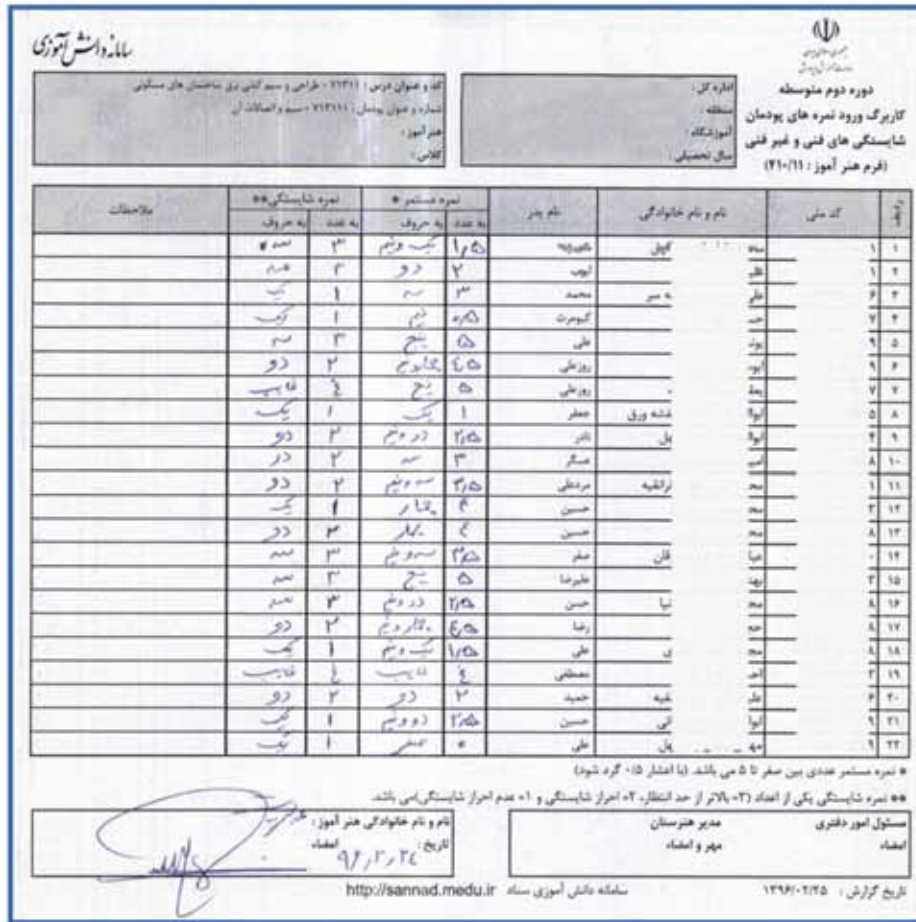 سامانه دانش آموزی
جمهوری اسلامی ایران
وزارت آموزش و پرورش
دوره دوم متوسطه
کاربرگ ورود نمره های پودمان
شایستگی های فنی و غیر فنی
(فرم هنر آموز : ۴۱۰/۱۱)
اداره کل :
منطقه :
آموزشگاه :
سال تحصیلی :
کد و عنوان درس : ۷۱۳۱۱ - طراحی و سیم کشی برق ساختمان های مسکونی
شماره و عنوان پودمان : ۷۱۳۱۱۱ - سیم و اتصالات آن
هنر آموز :
کلاس :
ردیف کد ملی نام و نام خانوادگی نام پدر نمره مستمر * نمره شایستگی** ملاحظات
به عدد به حروف به عدد به حروف
۱ ۱ ۱٫۵ یک ونیم ۳ سه
۲ ۱ ایوب ۲ دو ۳ سه
۳ ۶ علی ه سر محمد ۳ سه ۱ یک
۴ ۷ کیومرث ۰٫۵ نیم ۱ یک
۵ ۹ علی ۵ پنج ۳ سه
۶ ۹ روزعلی ۴٫۵ چهارونیم ۲ دو
۷ ۷ روزعلی ۵ پنج غ غایب
۸ ۵ قشه ورق جعفر ۱ یک ۱ یک
۹ ۴ پل نادر ۲٫۵ دو ونیم ۲ دو
۱۰ ۸ عسگر ۳ سه ۲ دو
۱۱ ۱ رانقیه مردعلی ۳٫۵ سه ونیم ۲ دو
۱۲ ۳ حسین ۴ چهار ۱ یک
۱۳ ۸ حسین ۴ چهار ۲ دو
۱۴ ۰ قان صفر ۳٫۵ سه ونیم ۳ سه
۱۵ ۳ علیرضا ۵ پنج ۳ سه
۱۶ ۸ نیا حسن ۲٫۵ دو ونیم ۳ سه
۱۷ ۸ رضا ۴٫۵ چهارونیم ۲ دو
۱۸ ۸ ی علی ۱٫۵ یک ونیم ۱ یک
۱۹ ۳ مصطفی غ غایب غ غایب
۲۰ ۶ قیه حمید ۲ دو ۲ دو
۲۱ ۹ ائی حسین ۲٫۵ دو ونیم ۱ یک
۲۲ ۹ پل علی ۰ صفر ۱ یک
* نمره مستمر عددی بین صفر تا ۵ می باشد. (با اعشار ۰/۵ گرد شود)
** نمره شایستگی یکی از اعداد (۳= بالاتر از حد انتظار، ۲= احراز شایستگی و ۱= عدم احراز شایستگی)می باشد.
مسئول امور دفتری
امضاء
مدیر هنرستان
مهر و امضاء
نام و نام خانوادگی هنر آموز :
تاریخ : ۹۶٫۲٫۲۴ امضاء
تاریخ گزارش : ۱۳۹۶/۰۲/۲۵
سامانه دانش آموزی سناد http://sannad.medu.ir